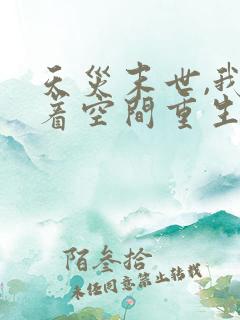 天災末世,我
着空間重生
陌叁拾
未经同意禁止转载